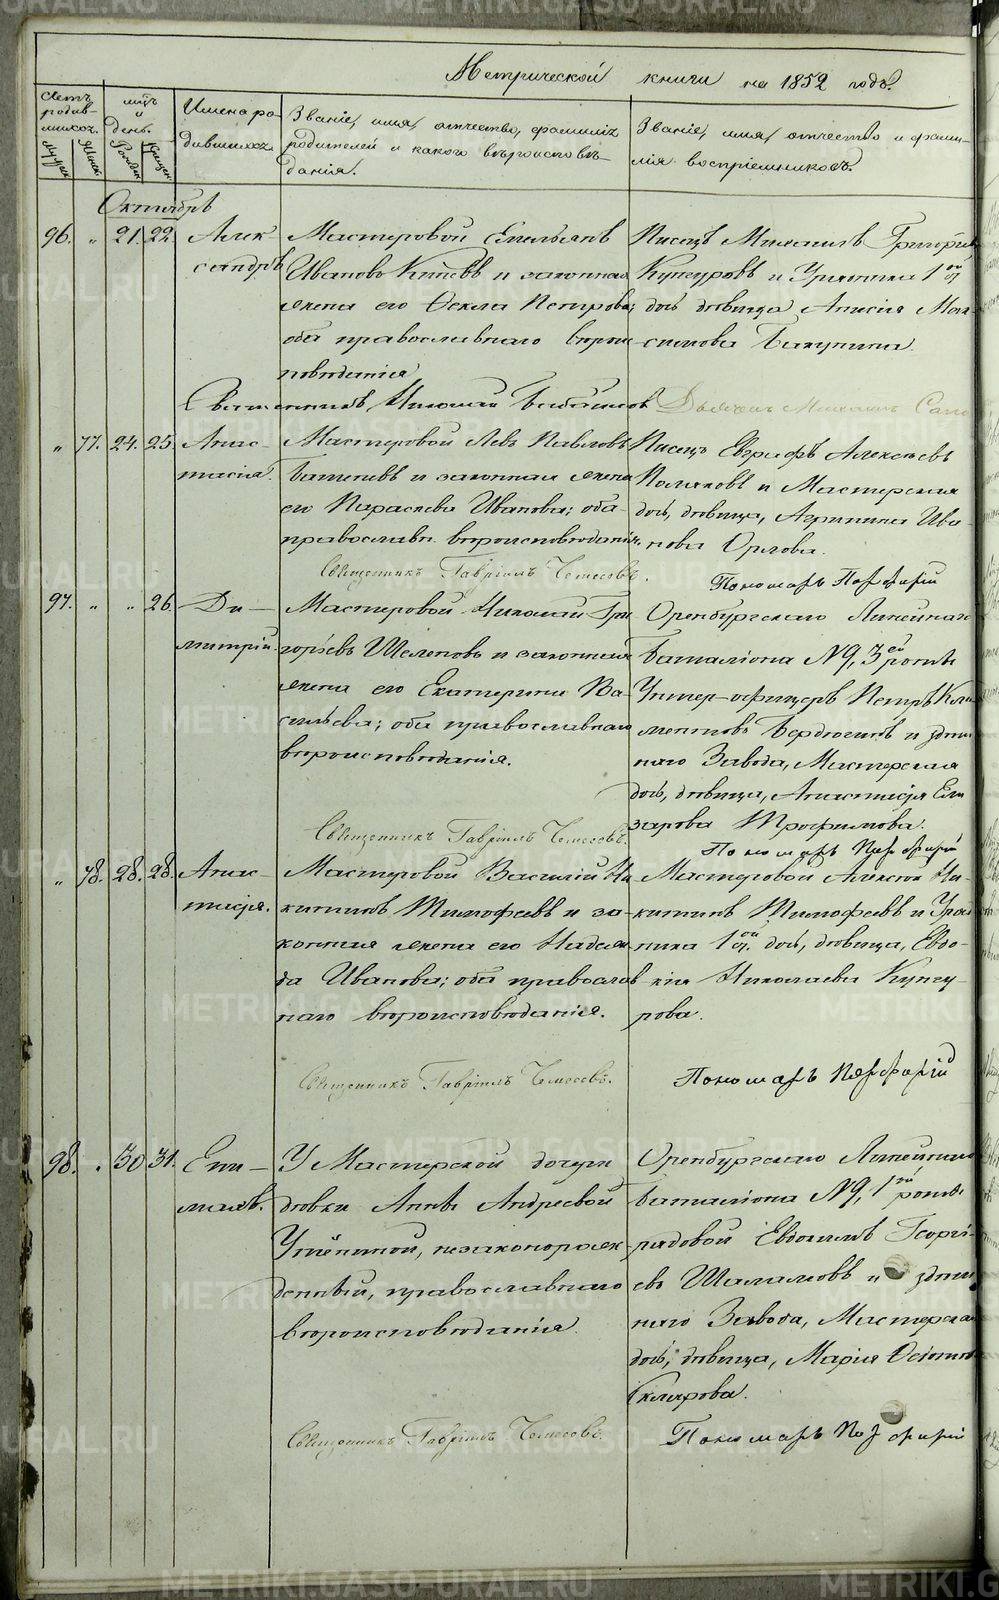 Метрической книги на 1852 годъ.
Счетъ родившихся. Мужск. Женск.
мцъ и день. Рожден. Крещен.
Имена родившихся.
Званіе, имя, отчество, фамилія родителей и какого вѣроисповѣданія.
Званіе, имя, отчество и фамилія воспріемниковъ.
Октябрь
96. " 21. 22. Александръ
Мастеровой Емельянъ
Ивановъ и законная
жена его Ѳекла Петрова;
оба православнаго вѣроисповѣданія
Писецъ Михаилъ Григорьевъ
Кунгуровъ и Урядника 1й ст.
дочь дѣвица Анисія Максимова Бакунина.
Священникъ Николай
" 77. 24. 25. Анастасія.
Мастеровой Левъ Павловъ
и законная жена
его Параскева Иванова; оба
православн. вѣроисповѣданія.
Писецъ Евграфъ Алексѣевъ
Поляковъ и Мастерская
дочь, дѣвица, Агрипина Иванова Орлова.
Священникъ Гавріилъ Чемесовъ.
Пономарь Порфирій
97. " " 26. Димитрій.
Мастеровой Николай Григорьевъ Шелеповъ и законная
жена его Екатерина Васильева; оба православнаго
вѣроисповѣданія.
Оренбургскаго Линейнаго
Баталіона №9, 3ей роты
Унтер-офицеръ Петръ Климентовъ Бердюгинъ и здѣшняго Завода, Мастерская
дочь, дѣвица, Анастасія Елизарова Трофимова.
Священникъ Гавріилъ Чемесовъ.
Пономарь Порфирій
" 78. 28. 28. Анастасія.
Мастеровой Василій Никитинъ Тимофеевъ и законная жена его Надежда Иванова; оба православнаго вѣроисповѣданія.
Мастеровой Алексѣй Никитинъ Тимофеевъ и Урядника 1й ст. дочь, дѣвица, Евдокія Николаева Кунгурова.
Священникъ Гавріилъ Чемесовъ.
Пономарь Порфирій
98. " 30 31. Епимахъ.
У Мастерской дочери
дѣвки Анны Андреевой
Утёниной, незаконорожденный, православнаго
вѣроисповѣданія.
Оренбургскаго Линейнаго
Баталіона №9, 1й роты
рядовой Евдокимъ Георгіевъ Шаламовъ и здѣшняго Завода, Мастерская
дочь, дѣвица, Марія Осипова
Склярова.
Священникъ Гавріилъ Чемесовъ.
Пономарь Порфирій
METRIKI.GASO-URAL.RU